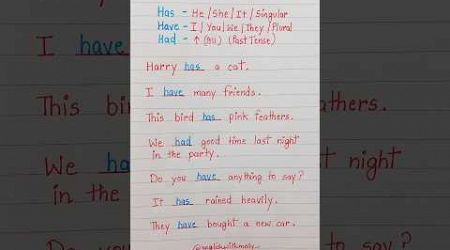 Has - He/She/It/Singular
Have - I/You/We/They/Plural
Had - ↑ (All) (Past Tense)
Harry has a cat.
I have many friends.
This bird has pink feathers.
We had good time last night
in the party.
Do you have anything to say?
It has rained heavily.
They have bought a new car.